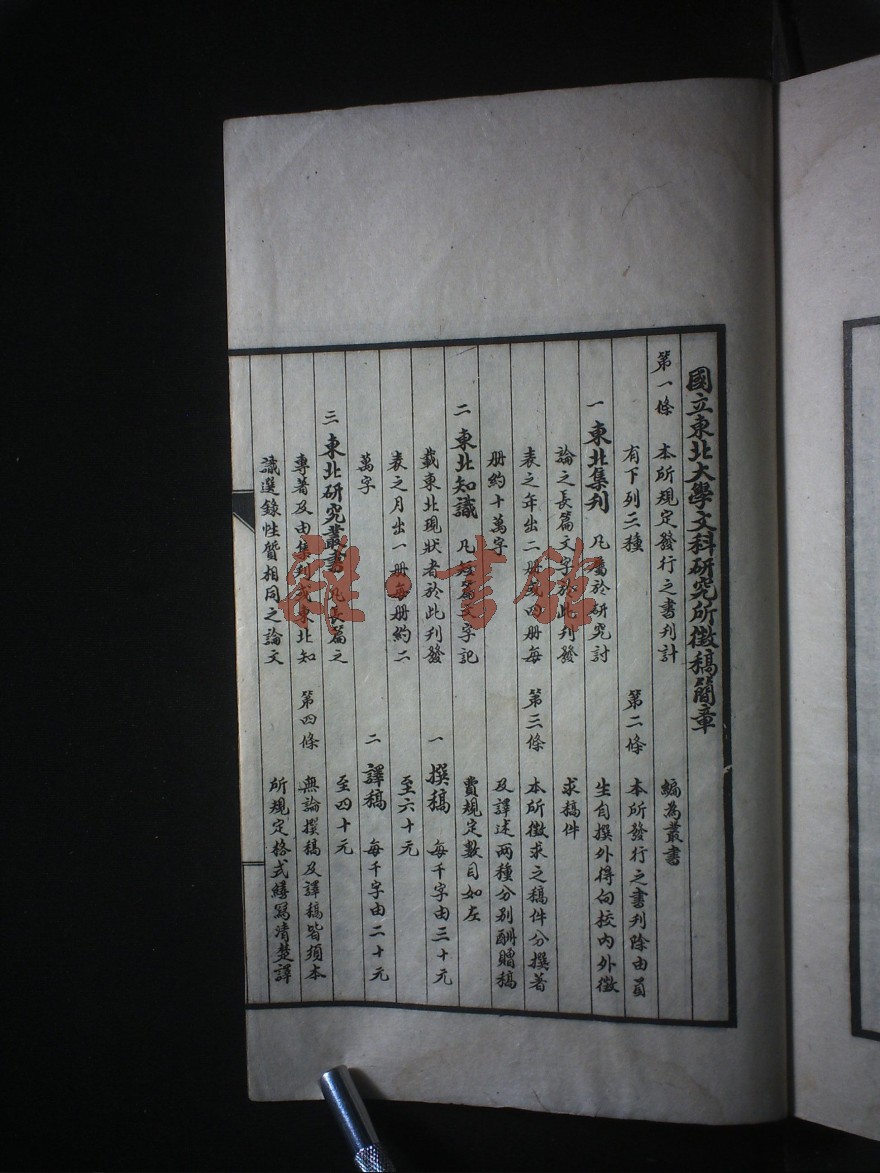 國立東北大學文科研究所徵稿簡章
第一條 本所規定發行之書刋計
有下列三種
一 東北集刋 凡屬於研究討
論之長篇文字於此刋發
表之年出二册或四册每
册約十萬字
二 東北知識 凡短篇文字記
載東北現狀者於此刋發
表之月出一册每册約二
萬字
三 東北研究叢書 凡長篇之
專著及由集刋或東北知
識選錄性質相同之論文
編為叢書
第二條 本所發行之書刋除由員
生自撰外得向校内外徵
求稿件
第三條 本所徵求之稿件分撰著
及譯述兩種分别酬贈稿
費規定數目如左
一 撰稿 每千字由三十元
至六十元
二 譯稿 每千字由二十元
至四十元
第四條 無論撰稿及譯稿皆須本
所規定格式繕寫清楚譯
雜·書館